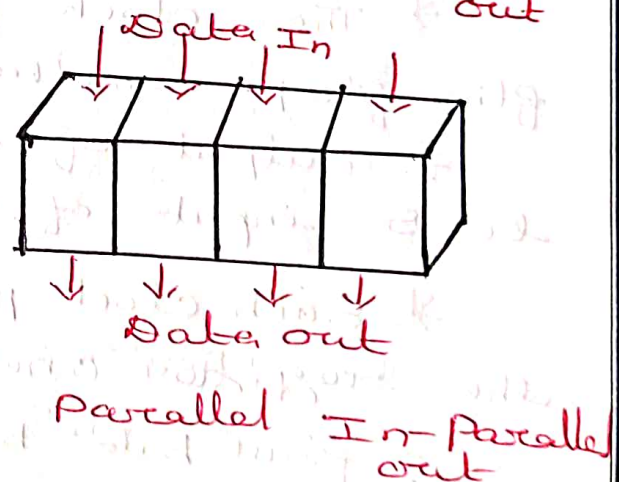 out
Data In
Data out
Parallel In-Parallel
out